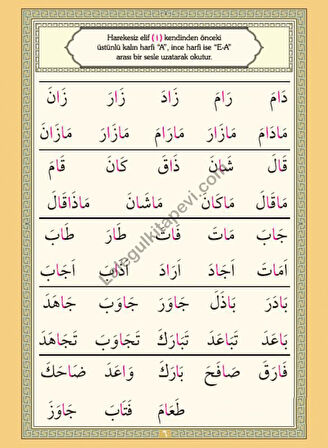 Harekesiz elif (ا) kendinden önceki
üstünlü kalın harfi "A", ince harfi ise "E-A"
arası bir sesle uzatarak okutur.
دَامَ رَامَ زَادَ زَارَ زَانَ
مَادَامَ مَازَارَ مَارَامَ مَازَارَ مَازَانَ
قَالَ شَانَ ذَاقَ كَانَ قَامَ
مَاقَالَ مَاكَانَ مَاشَانَ مَاذَاقَالَ
جَابَ مَاتَ فَاتَ طَارَ طَابَ
اَمَاتَ اَجَادَ اَرَادَ اَذَابَ اَجَابَ
بَادَرَ بَاذَلَ جَاوَرَ جَاوَبَ جَاهَدَ
بَاعَدَ تَبَاعَدَ تَبَارَكَ تَجَاوَبَ تَجَاهَدَ
فَارَقَ صَافَحَ بَارَكَ وَاعَدَ ضَاحَكَ
طَعَامَ فَتَابَ جَاوَزَ
Lalegulkitapevi.com